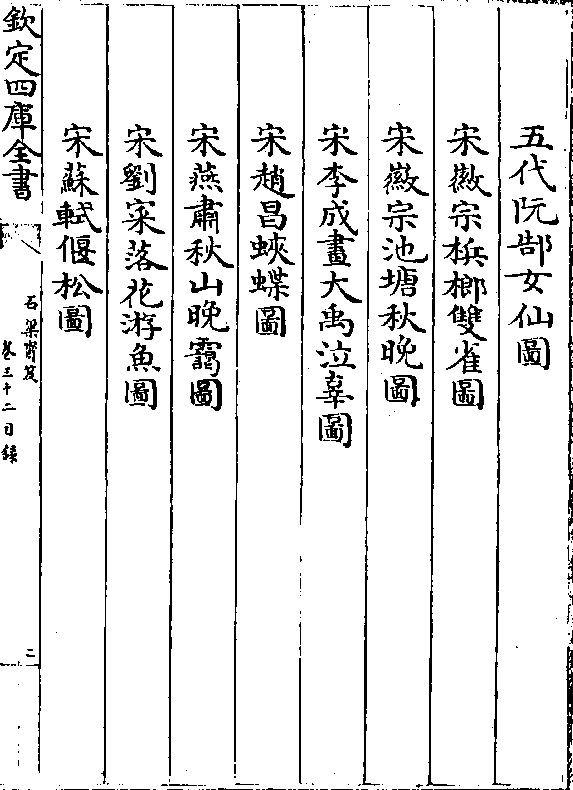 五代阮郜女仙圖
宋徽宗梹榔雙雀圖
宋徽宗池塘秋晚圖
宋李成畫大禹泣辜圖
宋趙昌蛺蝶圖
宋燕肅秋山晚靄圖
宋劉寀落花游魚圖
宋蘇軾偃松圖
欽定四庫全書
石渠寶笈
卷三十二目錄
二